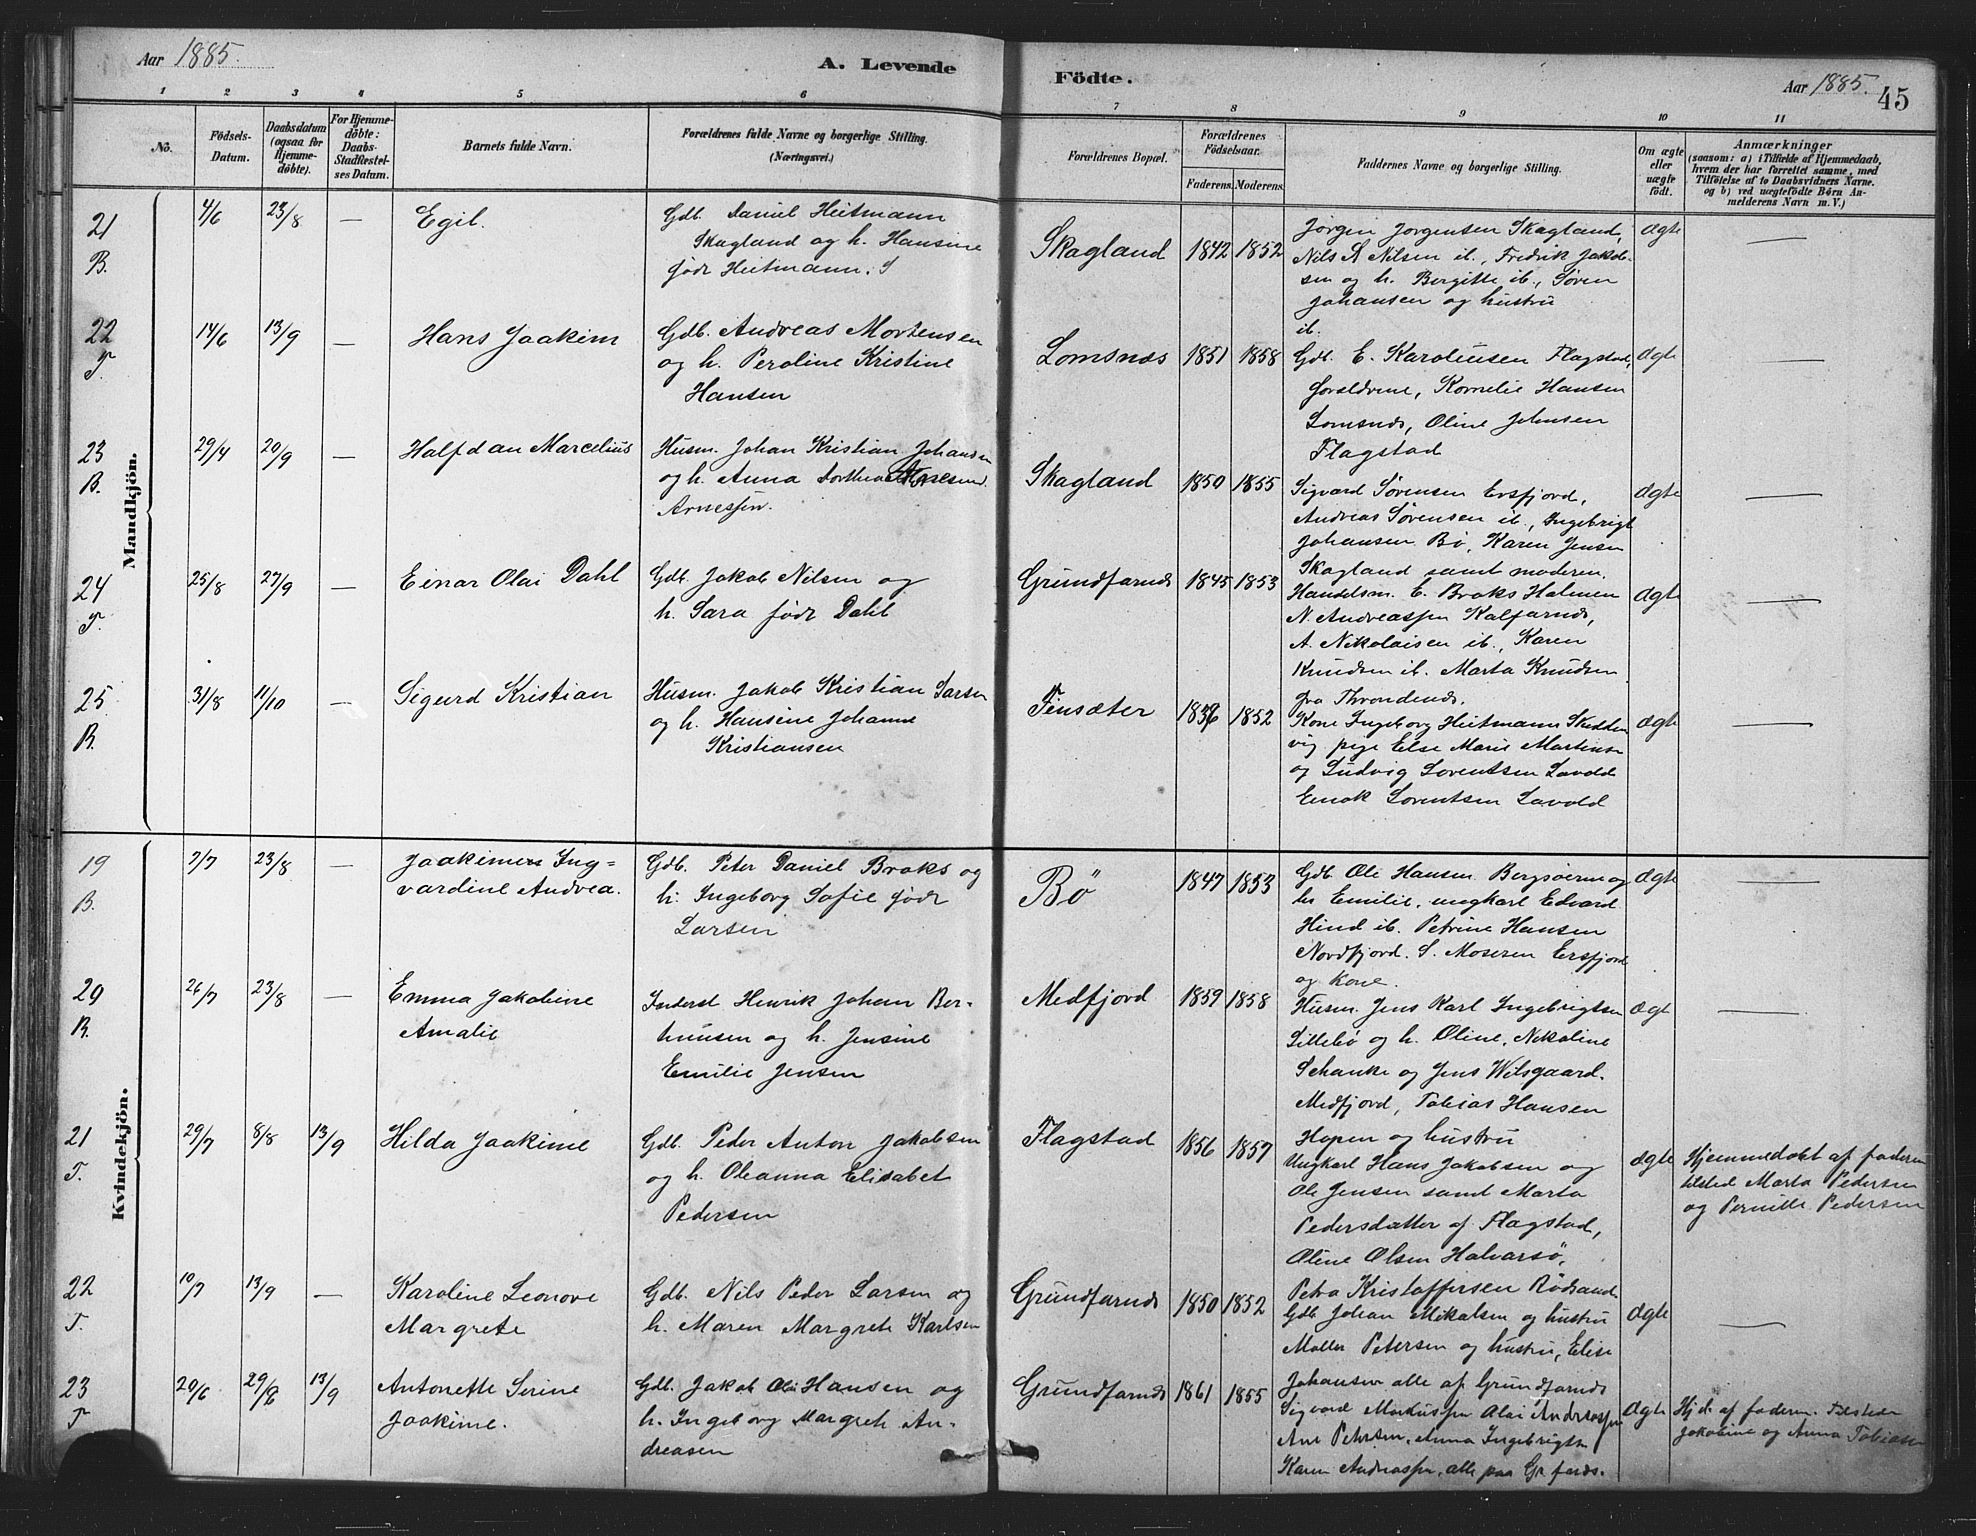 Aar 1885.
A. Levende
Födte.
Aar 1885.
45
1 2 3 4 5 6 7 8 9 10 11
No.
Födsels-
Datum.
Daabsdatum
(ogsaa for
Hjemme-
døbte).
For Hjemme-
döbte:
Daabs-
Stadfæstel-
ses Datum.
Barnets fulde Navn.
Forældrenes fulde Navne og borgerlige Stilling.
(Næringsvei.)
Forældrenes Bopæl.
Forældrenes
Födselsaar.
Faderens. Moderens.
Faddernes Navne og borgerlige Stilling.
Om ægte
eller
uægte
födt.
Anmærkninger
(saasom: a) i Tilfælde af Hjemmedaab,
hvem der har forrettet samme, med
Tilföielse af to Daabsvidners Navne.
og b) ved uægtefödte Börn An-
melderens Navn m. V.)
Mandkjön.
21
B.
4/6 23/8 —
Egil.
Gdb. Daniel Heitmann
Skagland og h. Hansine
født Heitmann. S
Skagland
1842 1852
Jørgen Jørgensen Skagland,
Nils A Nilsen ib., Fredrik Jakob-
sen og h. Bergitte ib., Søren
Johansen og hustru
ib.
ægte —
22
T.
14/6 13/9 —
Hans Joakim
Gdb. Andreas Mortensen
og h. Peroline Kristine
Hansen
Lomsnæs
1851 1858
Gdb. E. Karoliusen Flagstad,
forældrene, Kornelie Hansen
Lomsnæs, Oline Johnsen
Flagstad
ægte —
23
B.
29/4 20/9 —
Halfdan Marcelius
Husm. Johan Kristian Johansen
og h. Anna Dorthea
Arnessen.
Skagland
1850 1855
Sigvard Sørensen Ersfjord,
Andreas Sørensen ib., Ingebrigt
Johansen Bø, Karen Jensen
Skagland samt moderen.
ægte —
24
T.
25/8 27/9 —
Einar Olai Dahl
Gdb. Jakob Nilsen og
h. Sara født Dahl
Grundfarnæs
1845 1853
Handelsm. E. Broks Holmen
N. Andreassen Kalfarnæs,
A. Nikolaisen ib., Karen
Knudsen ib. Marta Knudsen
fra Throndenæs.
ægte —
25
B.
31/8 11/10 —
Sigurd Kristian
Husm. Jakob Kristian Larsen
og h. Hansine Johanne
Kristiansen
Finsæter
1852
Kone Ingeborg Heitmann Skidden
vig pige Else Marie Martinse
og Ludvig Lorentsen Lavold
Enok Lorentsen Lavold
ægte —
Kvindekjön.
19
B.
7/7 23/8 —
Joakimen Ing-
vardine Andrea.
Gdb. Peter Daniel Broks og
h. Ingeborg Sofie født
Larsen
Bø
1847 1853
Gdb Ole Hansen Bergsøerne og
h. Emilie, ungkarl Edvard
Hind ib. Petrine Hansen
Nordfjord. S. Mosesen Ersfjord
og Kone.
ægte —
20
B.
26/7 23/8 —
Emma Jakobine
Amalie
Inderst Henrik Johan Ber-
h. Jensine
Emilie Jensen
Medfjord
1859 1858
Husm. Jens Karl Ingebrigtsen
Lillebø og h. Oline, Nikoline
Schanke og Jens Wilsgaard.
Medfjord, Tobias Hansen
Hopen og hustru
ægt —
21
T.
29/7 8/8 13/9
Hilda Joakime
Gdb. Peder Anton Jakobsen
og h. Oleanna Elisabet
Pedersen
Flagstad
1856 1857
Ungkarl Hans Jakobsen og
Ole Jensen samt Marta
Pedersdatter af Flagstad,
Oline Olsen Halvarsø,
Petra Kristoffersen Rødsand
ægte
Hjemmedøbt af faderen
tilsted Marta Pedersen
og Pernille Pedersen
22
T.
10/7 13/9 —
Karoline Leonore
Margrete
Gdb. Nils Peder Larsen og
h. Maren Margrete Karlsen
Grundfarnæs
1850 1852
Gdb. Johan Mikalsen og hustru
Møller Petersen og hustru, Elise
Johansen alle af Grundfarnæs
ægte —
23
T
20/6 29/6 13/9
Antonette Serine
Joakime.
Gdb. Jakob Olai Hansen og
h. Ingeborg Margrete An-
dreasen
Grundfarnæs
1861 1855
Sigvard Markussen Olai Andreassen
Ane Petersen, Anna Ingebrigts
Karen Andreassen, alle paa Gr.farnæs.
ægte
Hj.d. af faderen. Tilstede
Jakobine og Anna Tobiasen